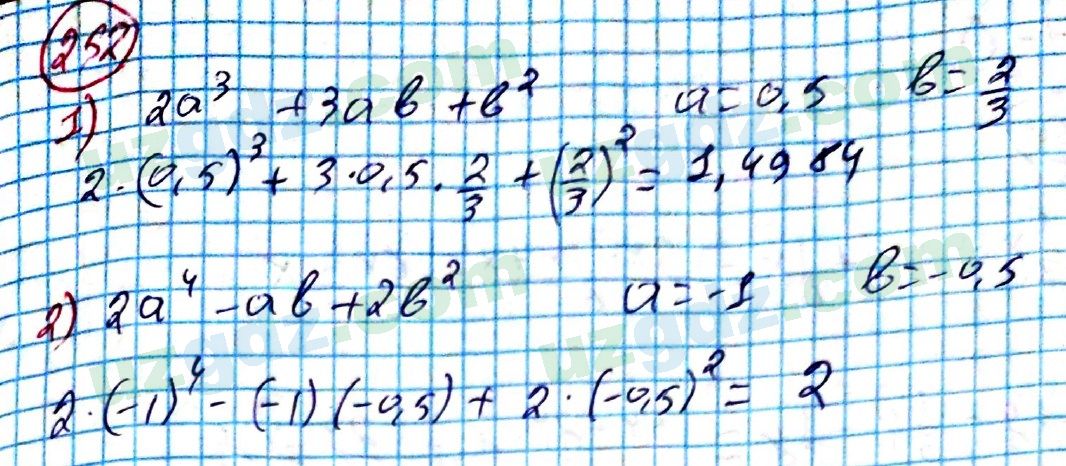 252
1) 2a³ + 3ab + b² a = 0,5 b = 2/3
2·(0,5)³ + 3·0,5·2/3 + (2/3)² = 1,4984
2) 2a⁴ - ab + 2b² a = -1 b = -0,5
2·(-1)⁴ - (-1)(-0,5) + 2·(-0,5)² = 2
uzgdz.com
uzgdz.com
uzgdz.com
uzgdz.com